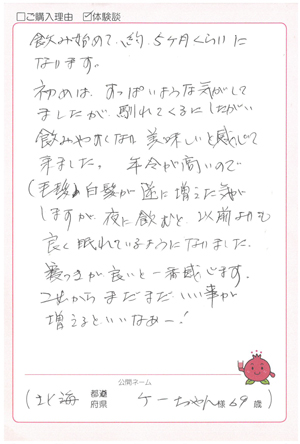 □ご購入理由 ☑体験談
飲み始めて、約5ヶ月くらいに
なります。
初めは、すっぱいような気がして
ましたが、馴れてくるにしたがい
飲みやすくなり 美味しいと感じて
来ました。 年令が高いので
(毛髪) 白髪が逆に増えた気が
しますが、夜に飲むと、以前よりも
良く眠れているようになりました。
寝つきが良いと一番感じます。
これからまだまだいい事が
増えるといいなあー!
公開ネーム
(北海 都道府県 ケーちゃん様 69歳)